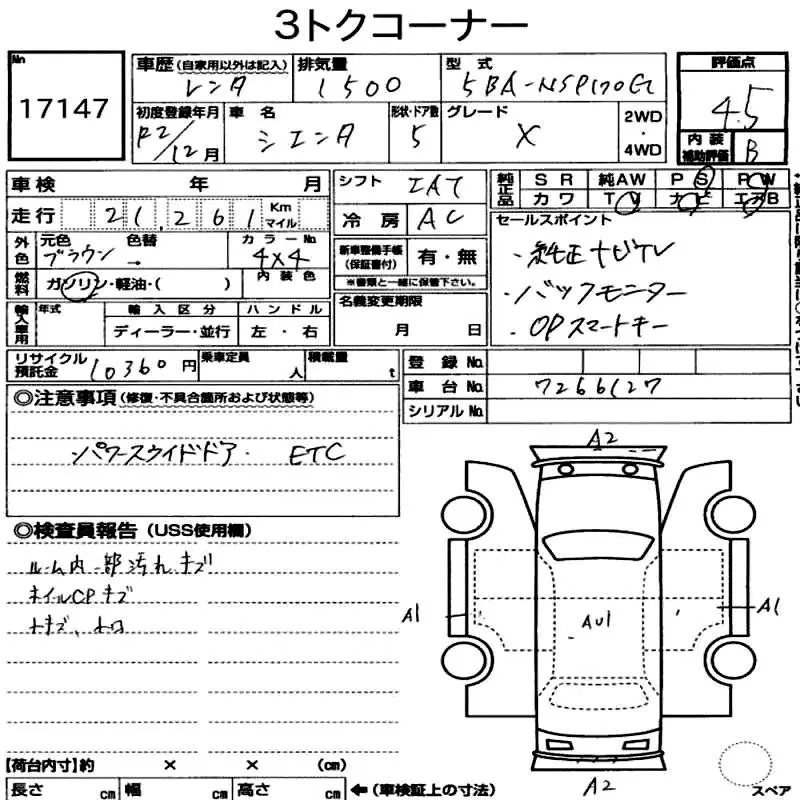 3トクコーナー
No 17147
車歴 (自家用以外は記入) 排気量 型式 評価点
レンタ 1500 5BA-NSP170G 4.5
初度登録年月 車名 形状・ドア数 グレード 2WD・4WD 内装補助評価
R2/12月 シエンタ 5 X B
車検 年 月 シフト IAT 純正品 SR 純AW PS PW
カワ TV ナビ エアB
走行 21,261 Km マイル 冷房 AC セールスポイント
外色 元色 色替 カラーNo. 新車整備手帳(保証書付) 有・無 ・純正ナビTV
ブラウン → 4X4 ※書類と一緒に保管下さい。
内装色
燃料 ガソリン・軽油・( ) ・バックモニター
名義変更期限
輸入車用 年式 輸入区分 ハンドル ・OPスマートキー
ディーラー・並行 左・右 月 日
リサイクル預託金 10360円 乗車定員 人 積載量 t 登録No.
車台No. 7266127
シリアルNo.
◎注意事項(修復・不具合箇所および状態等)
パワースライドドア ETC
◎検査員報告(USS使用欄)
ルーム内一部汚れ キズ
ホイルCPキズ
小キズ、小凹
A2
A1 AU1 A1
A2
【荷台内寸】約 × × (cm)
長さ cm 幅 cm 高さ cm ←(車検証上の寸法)
スペア